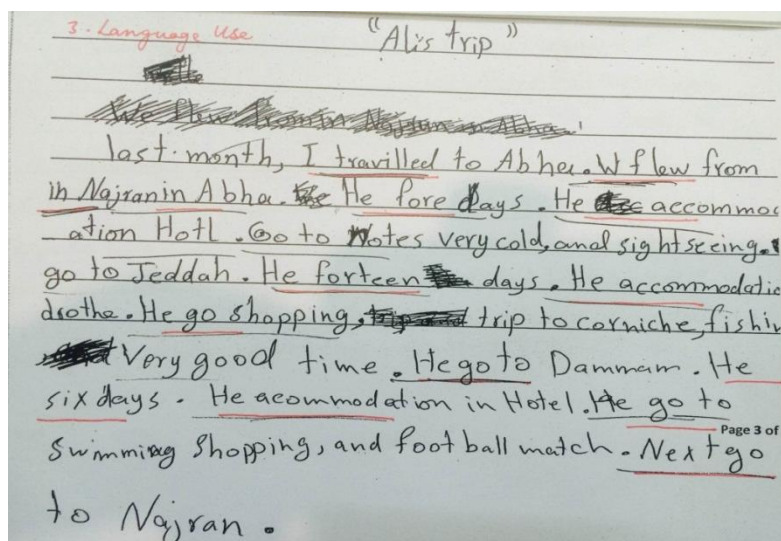 3. Language Use
"Alis trip"
last month, I travilled to Abha. W flew from
in Najran in Abha. He fore days. He accommod
ation Hotl. Go to Notes very cold, and sight seeing.
go to Jeddah. He forteen days. He accommodatio
drotha. He go shopping, trip to corniche, fishin
Very good time. He go to Dammam. He
six days. He acommodation in Hotel. He go to
Page 3 of
swimming shopping, and foot ball match. Next go
to Najran.